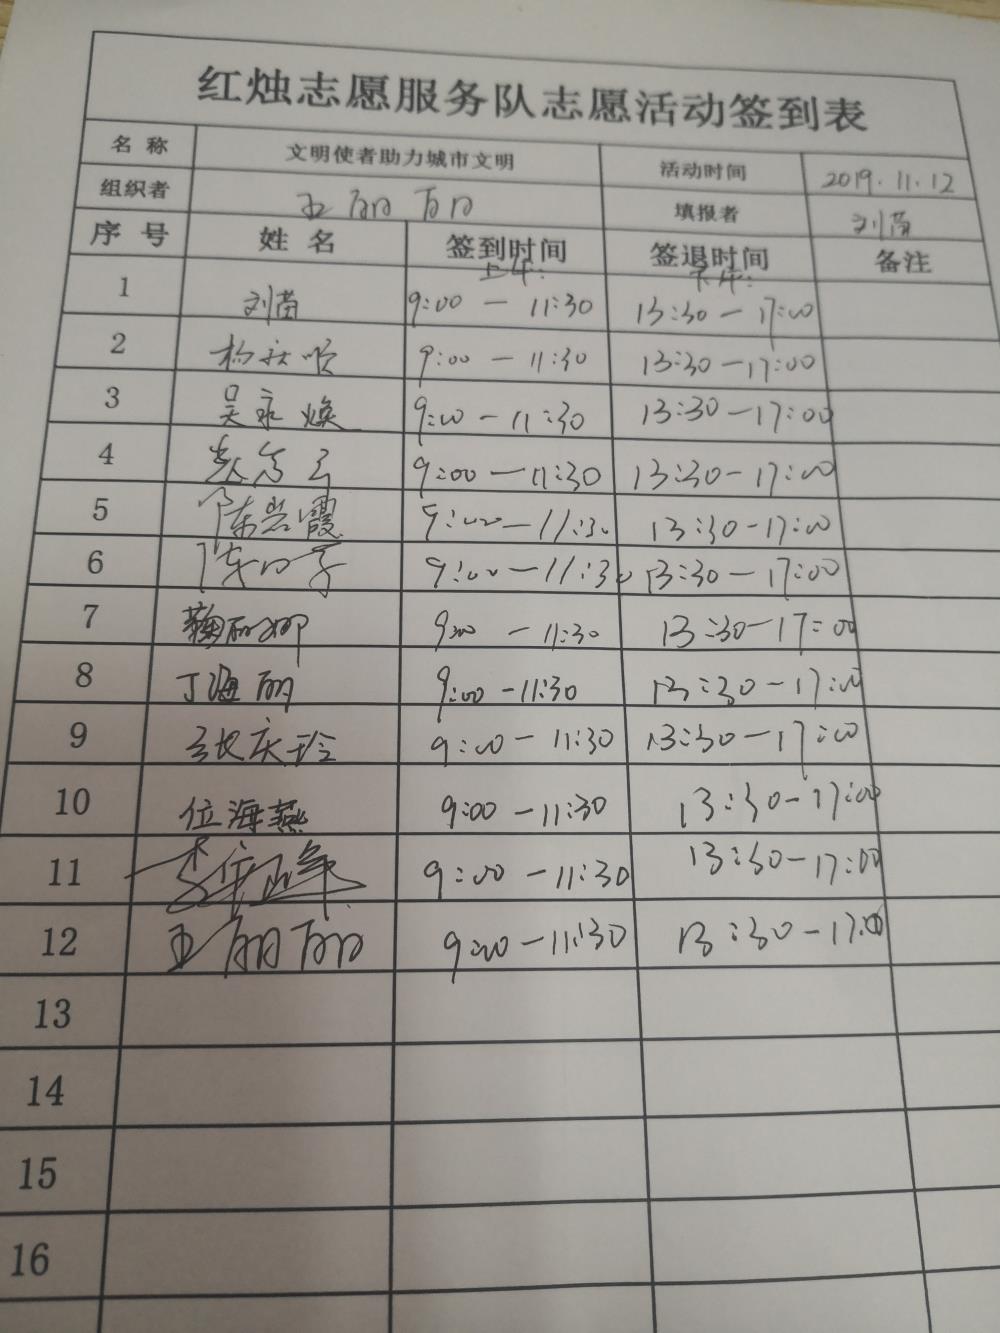 红烛志愿服务队志愿活动签到表
名称 文明使者助力城市文明 活动时间 2019.11.12
组织者 王丽丽 填报者 刘茵
序号 姓名 签到时间 签退时间 备注
上午: 下午:
1 刘茵 9:00 — 11:30 13:30 — 17:00
2 9:00 — 11:30 13:30 — 17:00
3 吴永焕 9:00 — 11:30 13:30 — 17:00
4 9:00 — 11:30 13:30 — 17:00
5 陈岩霞 9:00 — 11:30 13:30 — 17:00
6 9:00 — 11:30 13:30 — 17:00
7 鞠丽娜 9:00 — 11:30 13:30 — 17:00
8 丁海丽 9:00 — 11:30 13:30 — 17:00
9 张庆玲 9:00 — 11:30 13:30 — 17:00
10 位海燕 9:00 — 11:30 13:30 — 17:00
11 9:00 — 11:30 13:30 — 17:00
12 王丽丽 9:00 — 11:30 13:30 — 17:00
13
14
15
16